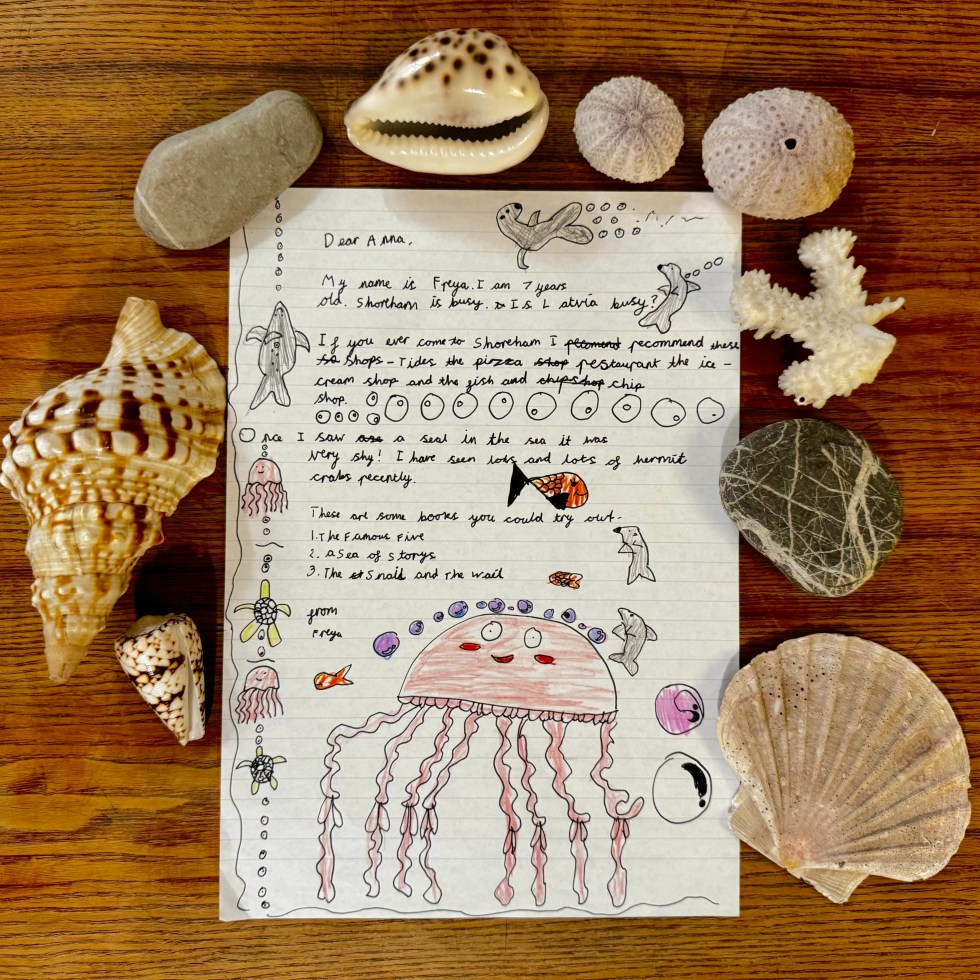 Dear Anna,
My name is Freya. I am 7 years
old. Shoreham is busy. Is Latvia busy?
If you ever come to Shoreham I recommend these
shops - Tides the pizzza restaurant the ice -
cream shop and the fish and chip
shop.
Once I saw a seal in the sea it was
very shy! I have seen lots and lots of hermit
crabs recently.
These are some books you could try out -
1. The Famous Five
2. a Sea of Storys
3. The Snail and The wail
from
Freya